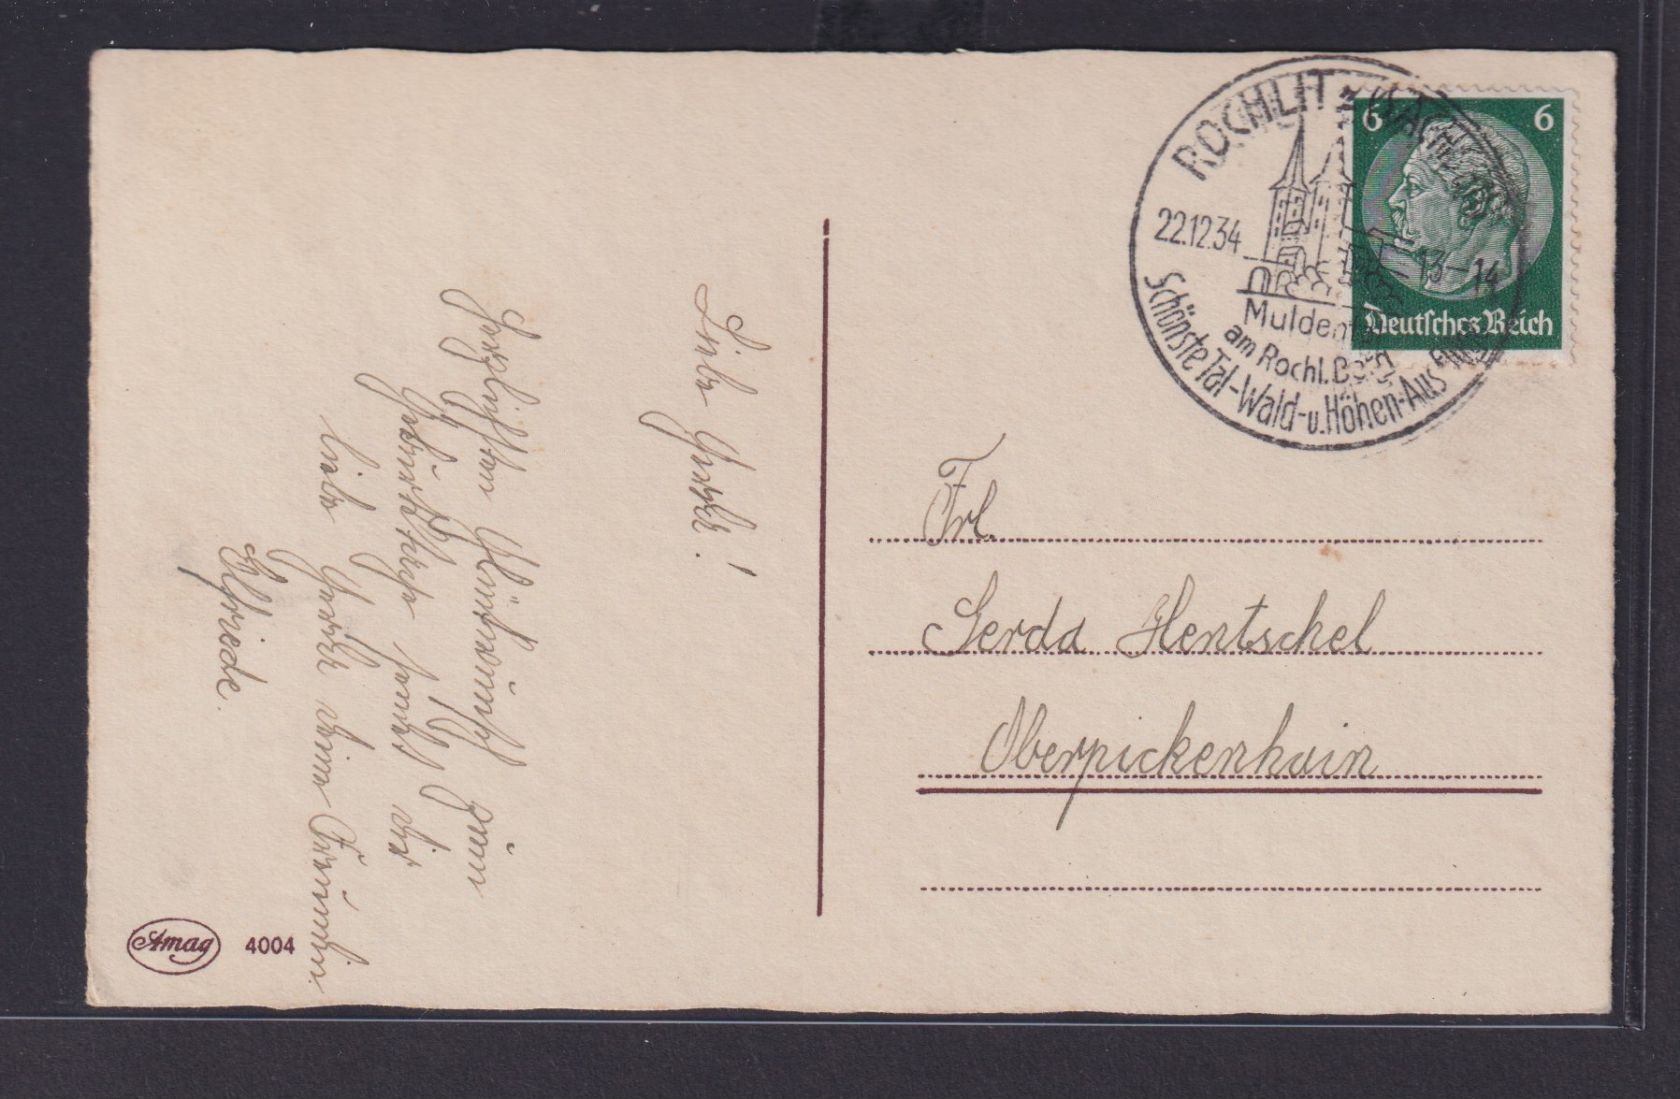 Liebe Gerda!
Herzlichsten Glückwunsch zum
Geburtstage sendet dir
liebe Gerda deine Freundin
Elfriede.
Amag 4004
ROCHLITZ (SACHS)
22.12.34 13-14
Mulden
am Rochl. Berg
Schönste Tal-Wald-u.Höhen-Aus
6 6
Deutsches Reich
Frl.
Gerda Hentschel
Oberpickenhain